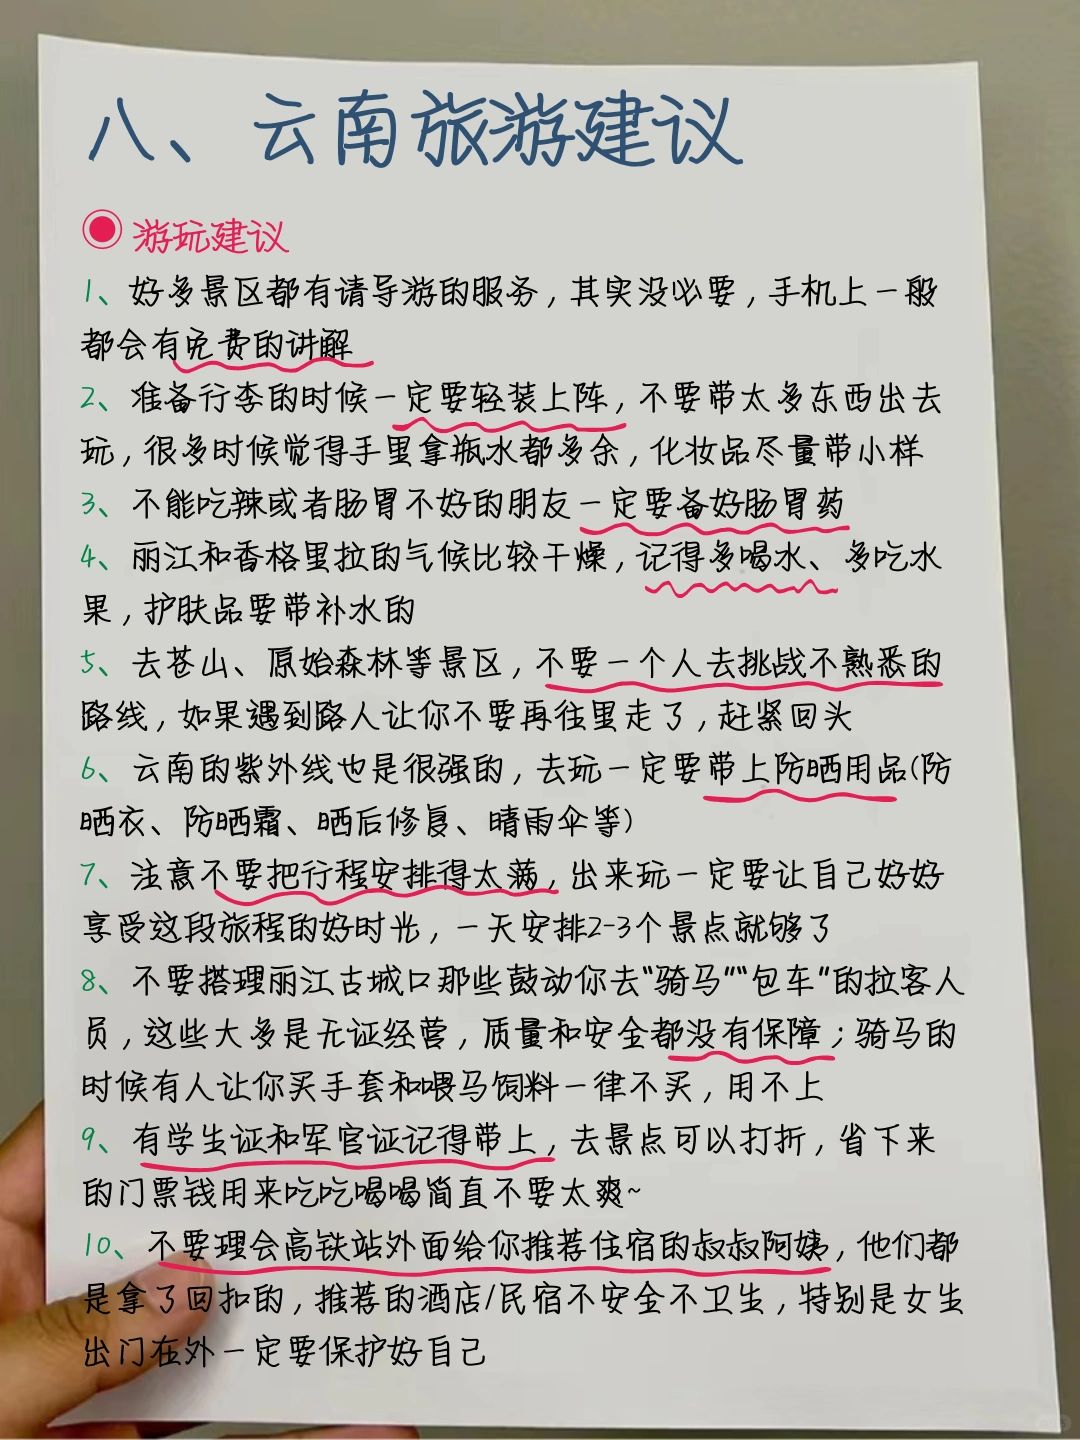 八、云南旅游建议
游玩建议
1、好多景区都有请导游的服务，其实没必要，手机上一般
都会有免费的讲解
2、准备行李的时候一定要轻装上阵，不要带太多东西出去
玩，很多时候觉得手里拿瓶水都多余，化妆品尽量带小样
3、不能吃辣或者肠胃不好的朋友一定要备好肠胃药
4、丽江和香格里拉的气候比较干燥，记得多喝水、多吃水
果，护肤品要带补水的
5、去苍山、原始森林等景区，不要一个人去挑战不熟悉的
路线，如果遇到路人让你不要再往里走了，赶紧回头
6、云南的紫外线也是很强的，去玩一定要带上防晒用品(防
晒衣、防晒霜、晒后修复、晴雨伞等)
7、注意不要把行程安排得太满，出来玩一定要让自己好好
享受这段旅程的好时光，一天安排2-3个景点就够了
8、不要搭理丽江古城口那些鼓动你去“骑马”“包车”的拉客人
员，这些大多是无证经营，质量和安全都没有保障；骑马的
时候有人让你买手套和喂马饲料一律不买，用不上
9、有学生证和军官证记得带上，去景点可以打折，省下来
的门票钱用来吃吃喝喝简直不要太爽~
10、不要理会高铁站外面给你推荐住宿的叔叔阿姨，他们都
是拿了回扣的，推荐的酒店/民宿不安全不卫生，特别是女生
出门在外一定要保护好自己